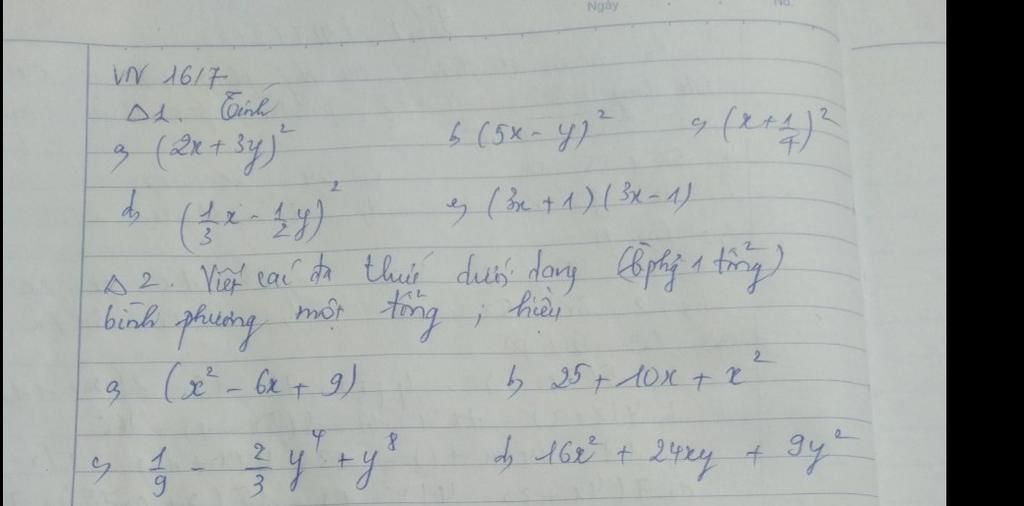 Ngày
No.
VN 16/7
Δ1. Tính
a, (2x + 3y)² b, (5x - y)² c, (x + 1/4)²
d, (1/3 x - 1/2 y)² e, (3x + 1)(3x - 1)
Δ2. Viết các đa thức dưới dạng (bphg 1 tổng)
bình phương một tổng ; hiệu
a, (x² - 6x + 9) b, 25 + 10x + x²
c, 1/9 - 2/3 y⁴ + y⁸ d, 16x² + 24xy + 9y²